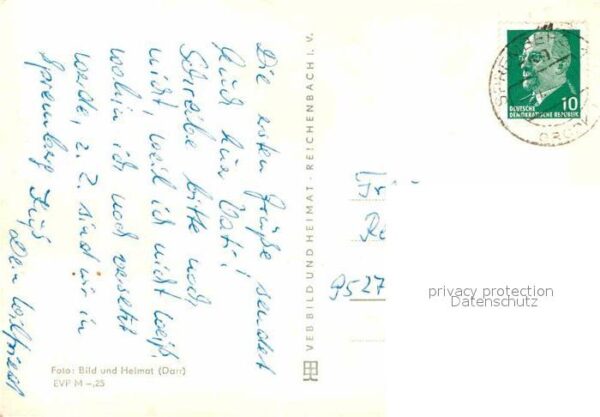 Die ersten Grüße sendet
Euch Euer Vati!
Schreibe bitte noch
nicht, weil ich nicht weiß,
wohin ich noch versetzt
werde, z. Z. sind wir in
Spremberg
Dein Wilfried
Foto: Bild und Heimat (Darr)
EVP M -,25
VEB BILD UND HEIMAT · REICHENBACH I. V.
SPREMBERG
10
DEUTSCHE
DEMOKRATISCHE REPUBLIK
9527
privacy protection
Datenschutz